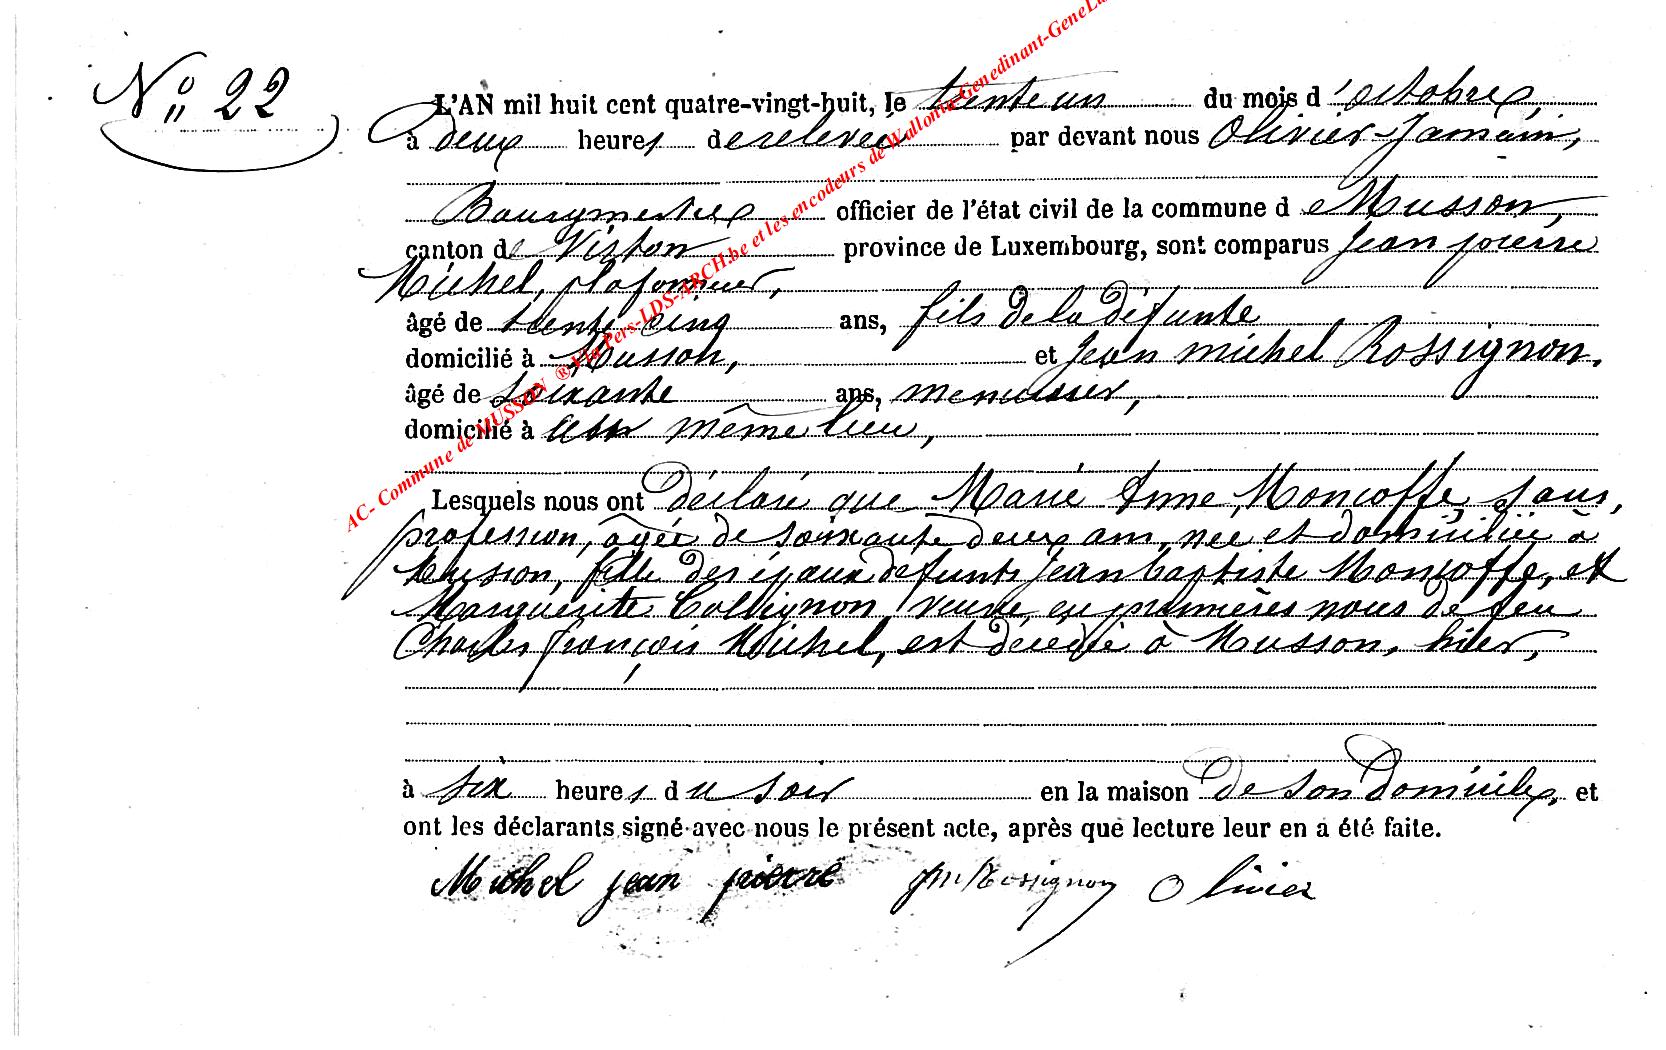 N° 22
L'AN mil huit cent quatre-vingt-huit, le trente un du mois d'octobre,
à deux heures de relevée par devant nous Olivier Jamain,
Bourgmestre officier de l'état civil de la commune de Musson,
canton de Virton province de Luxembourg, sont comparus Jean pierre
Michel, plafonneur,
âgé de trente cinq ans, fils de la défunte
domicilié à Musson, et Jean Michel Rossignon.
âgé de soixante ans, menuisier,
domicilié à même lieu,
Lesquels nous ont déclaré que Marie Anne Moncoffe, sans
profession, âgée de soixante deux ans, née et domiciliée à
Musson, fille des époux défunts Jean baptiste Moncoffe, et
Marguerite Collignon, veuve en premières noces de feu
Charles françois Michel, est décédée à Musson, hier,
à six heures du soir en la maison de son Domicile, et
ont les déclarants signé avec nous le présent acte, après que lecture leur en a été faite.
Michel jean pierre JM Rossignon Olivier
AC- Commune de MUSSON ® Via Pers-LDS-ARCH.be et les encodeurs de Wallonia-Genedinant-GeneLu